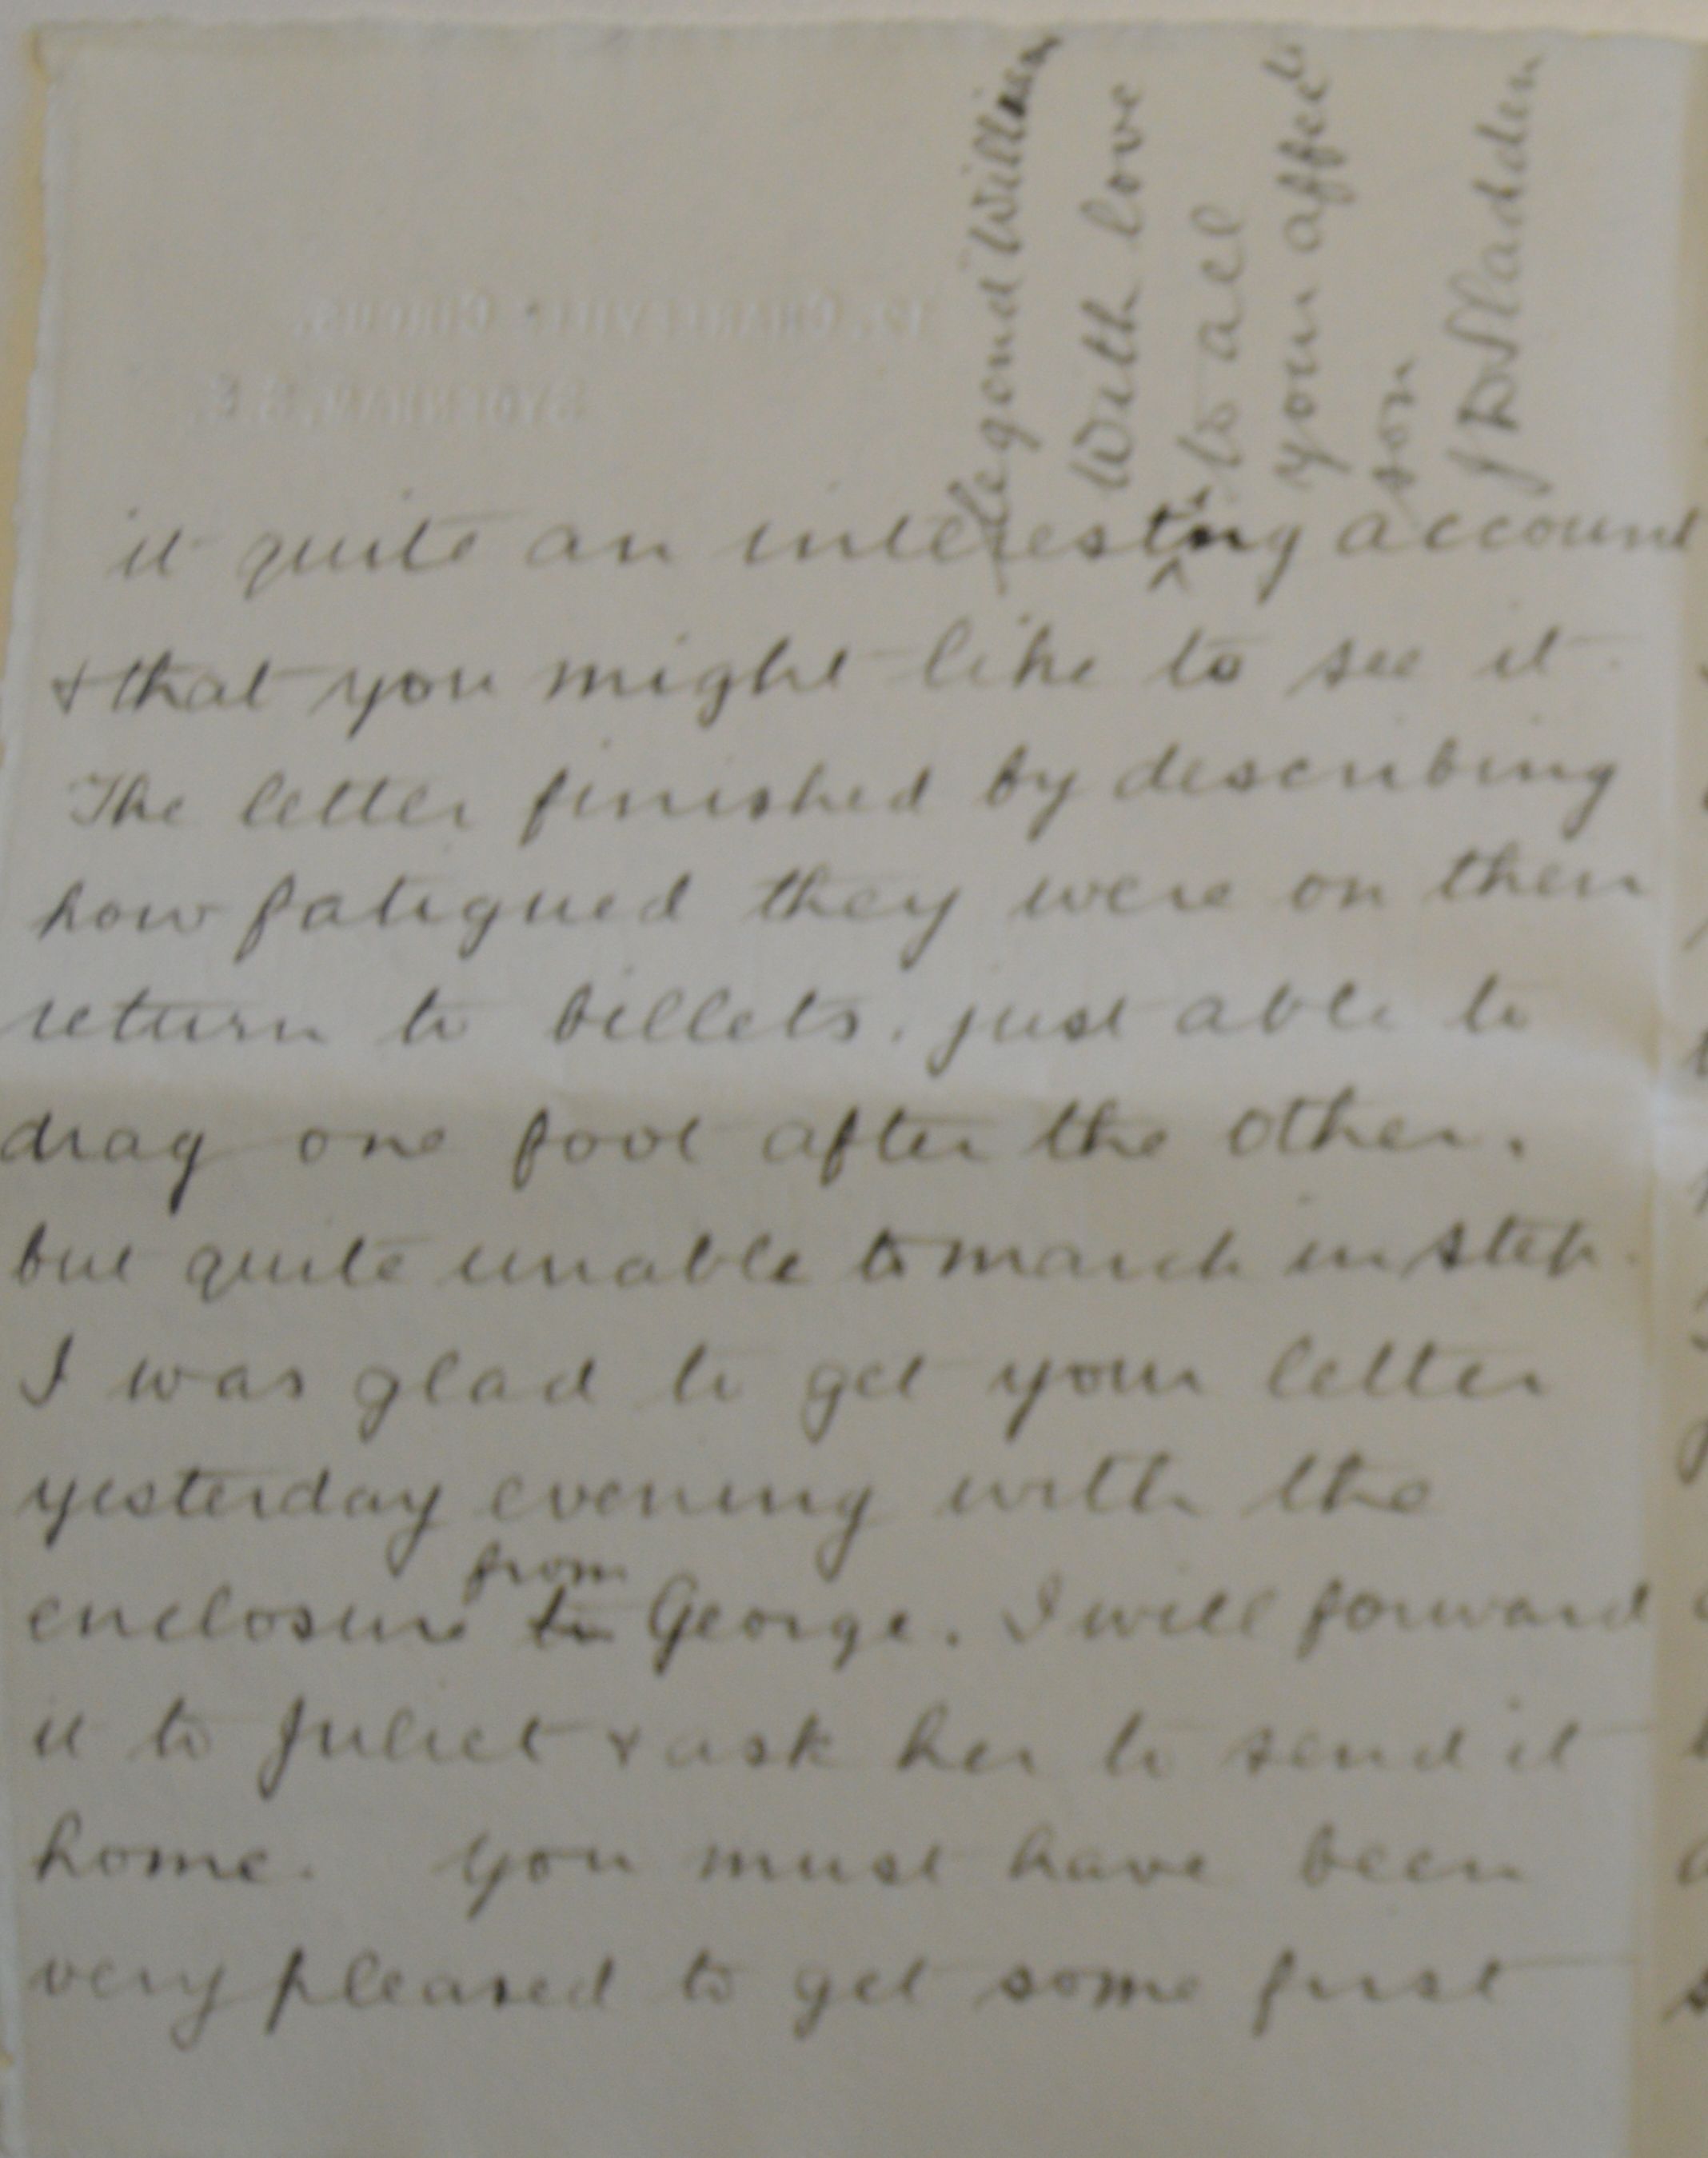 it quite an interesting account
& that you might like to see it.
The letter finished by describing
how fatigued they were on their
return to billets. just able to
drag one foot after the other.
but quite unable to march in step.
I was glad to get your letter
yesterday evening with the
from
enclosure to George. I will forward
it to Juliet & ask her to send it
home. You must have been
very pleased to get some first
William
With love
to all
your affecte
son
JDSladden
CIRCUS.
SYDENHAM. S.E.